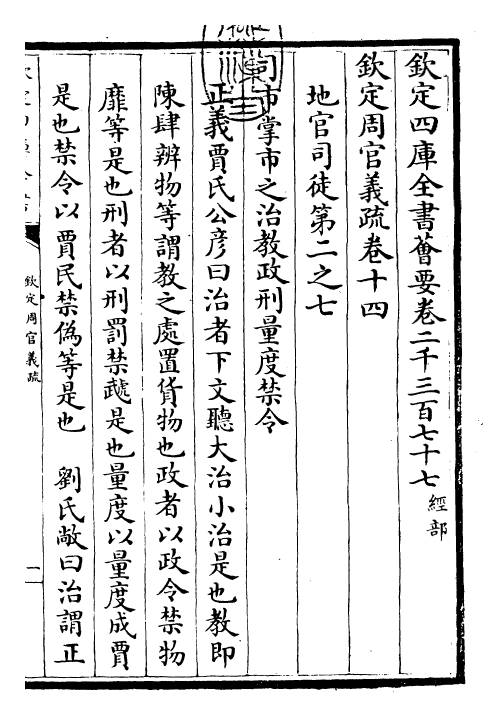 欽定四庫全書薈要卷二千三百七十七 經部
欽定周官義疏卷十四
地官司徒第二之七
司市掌市之治教政刑量度禁令
正義賈氏公彦曰治者下文聽大治小治是也教即
陳肆辨物等謂教之處置貨物也政者以政令禁物
靡等是也刑者以刑罰禁虣是也量度以量度成賈
是也禁令以賈民禁偽等是也 劉氏敞曰治謂正
欽定周官義疏
一